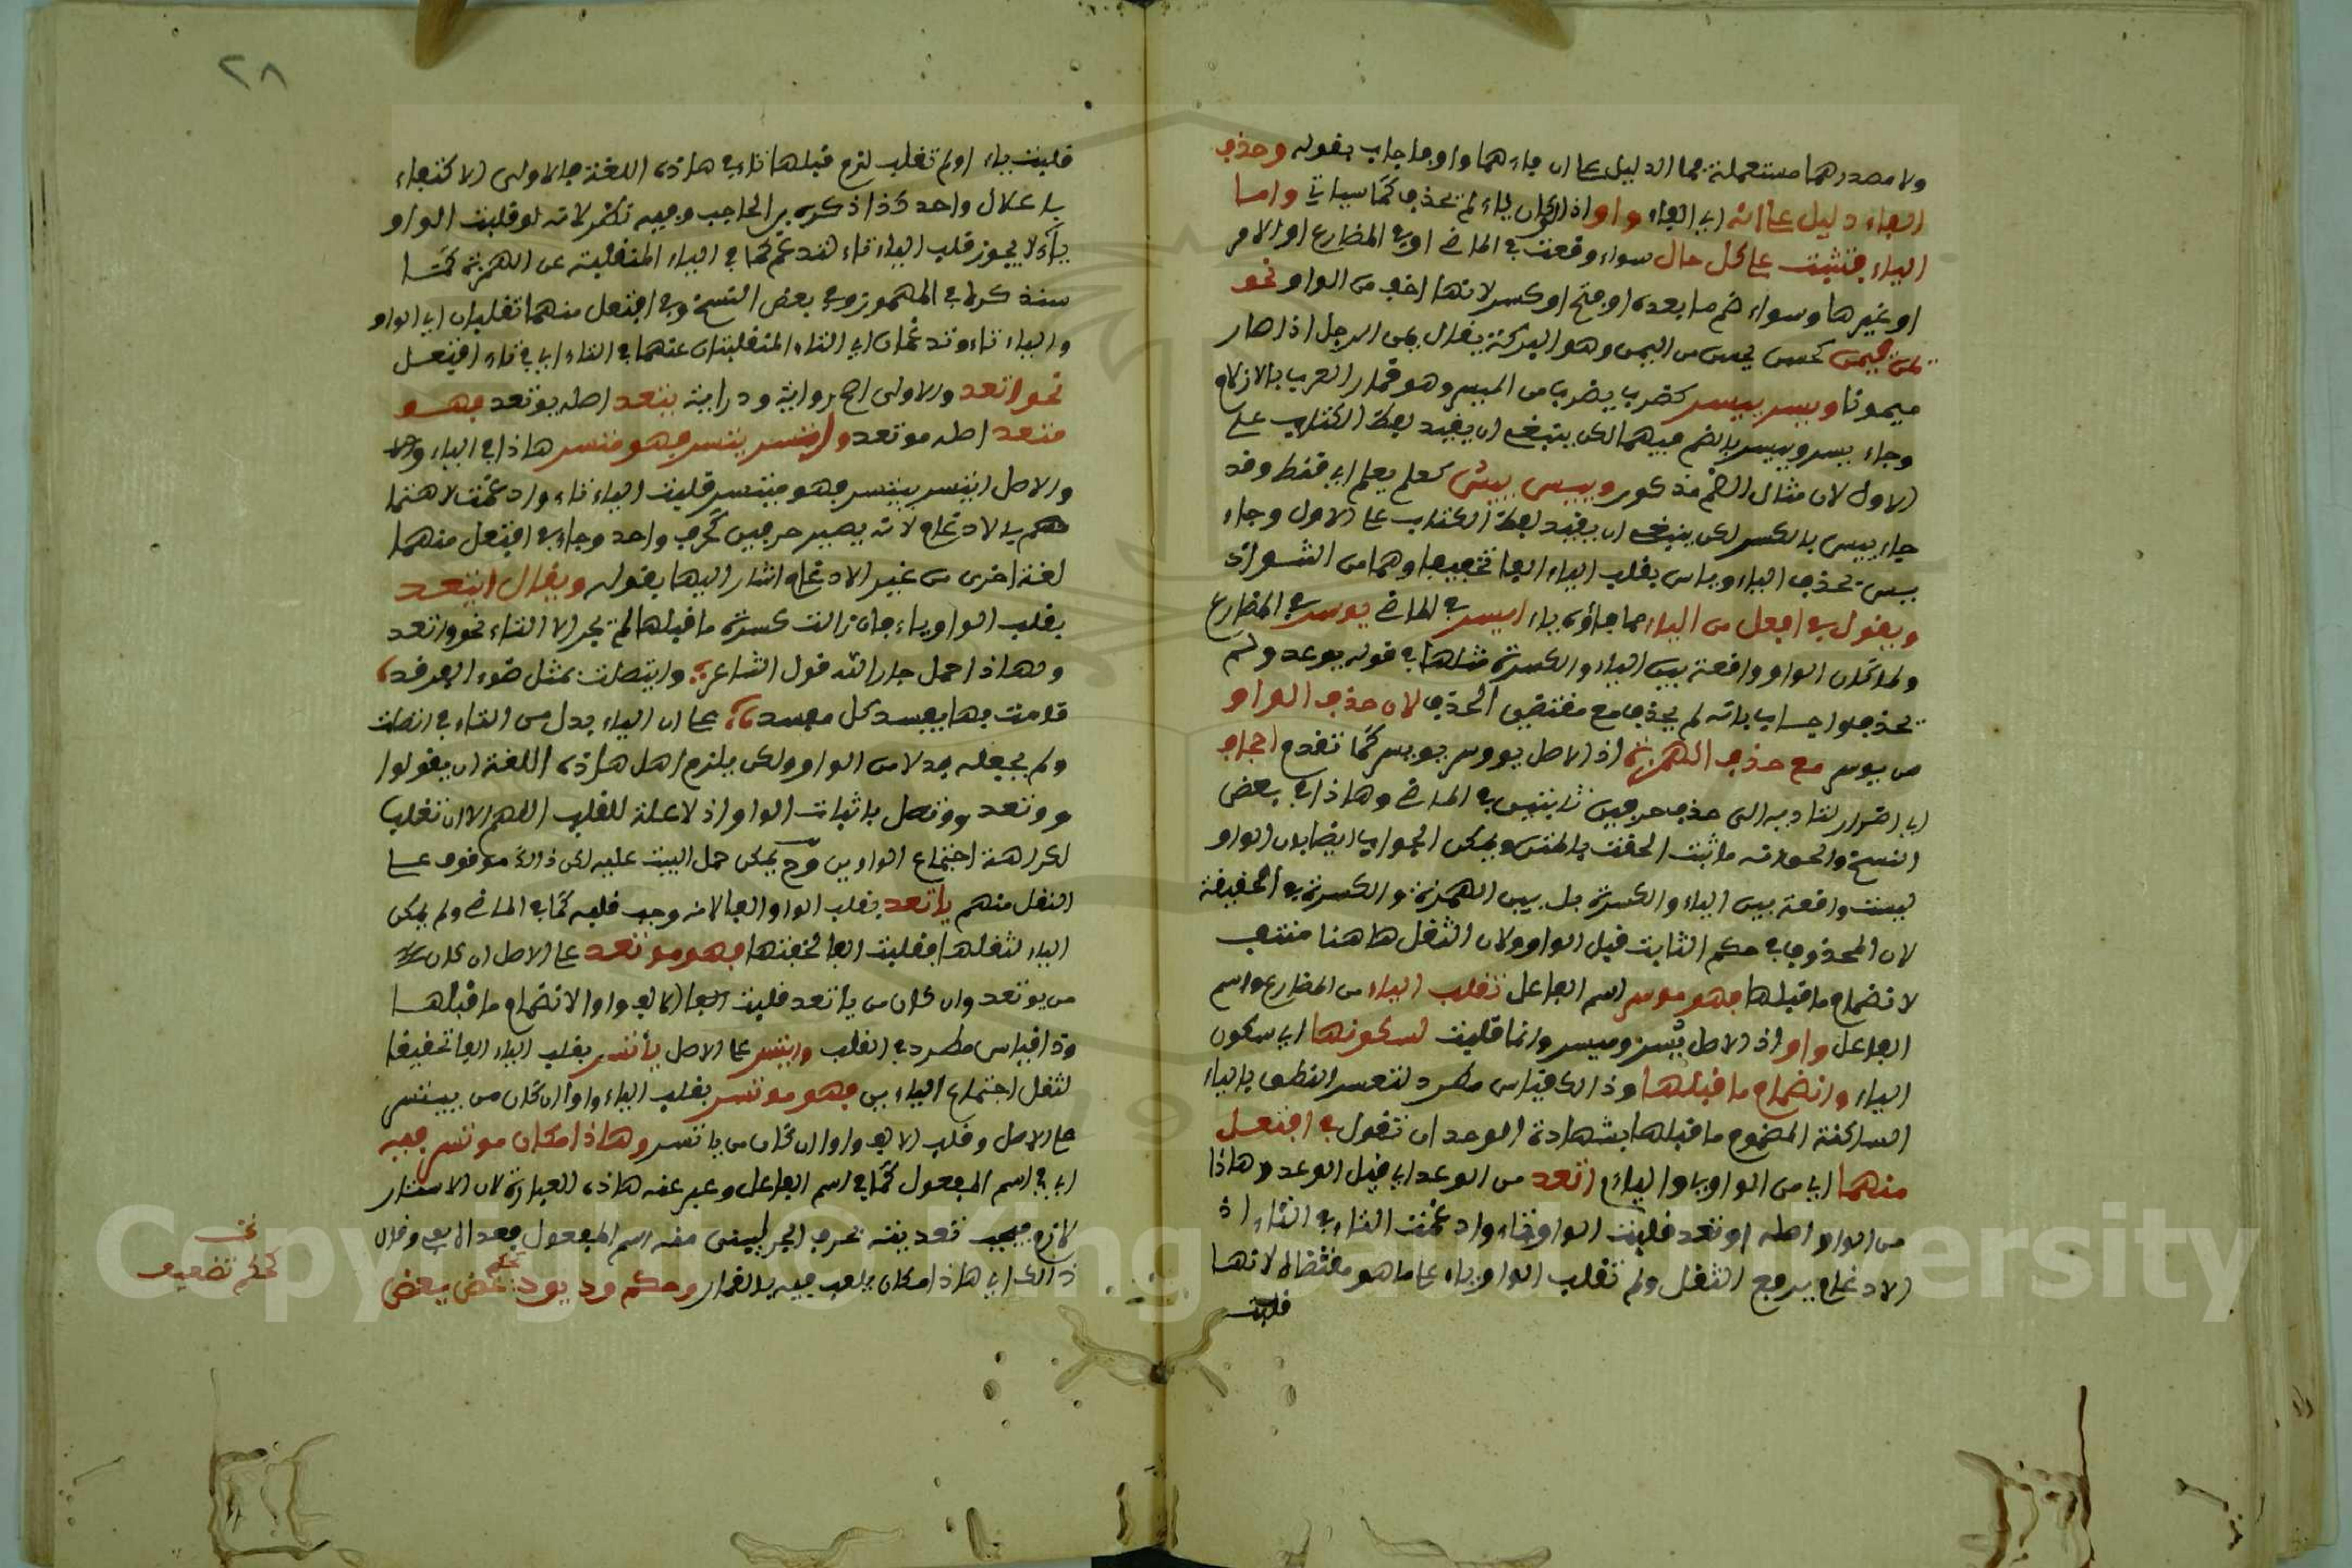 ولا مصدرهما مستعملة فما الدليل على ان فاءهما واو فاجاب بقوله وحذف
الفاء دليل على انه اي الفاء واو اذ لو كان ياء لم تحذف كما سياتي واما
الياء فتثبت على كل حال سواء وقعت في الماضي او في المضارع او الامر
او غيرها وسواء ضم ما بعده او فتح او كسر لانها اخف من الواو نحو
يمن ييمن كحسن يحسن من اليمن وهو البركة يقال يمن الرجل اذا صار
ميمونا ويسر ييسر كضرب يضرب من الميسر وهو قمار العرب بالازلام
وجاء يسر وييسر بالضم فيهما لكن ينبغي ان يقيد لفظ الكتاب على
الاول لان مثال الضم مذكور ويئس ييئس كعلم يعلم اي قنط وقد
جاء ييئس بالكسر لكن ينبغي ان يقيد لفظ الكتاب على الاول وجاء
يئس بحذف الياء وياس بقلب الياء الفا تخفيفا وهما من الشواذ
ويقول في افعل من الياء مما فاؤه ياء ايسر في الماضي يوسر في المضارع
ولما كان الواو واقعة بين الياء والكسرة مثلها في قوله يوعد ولم
تحذف اجاب بانه لم يحذف مع مقتضى الحذف لان حذف الواو
من يوسر مع حذف الهمزة اذ الاصل يووسر يويسر كما تقدم اجحاف
اي اضرار لتاديه الى حذف حرفين ثابتين في الماضي وهاذا في بعض
النسخ والحق انه ما ثبت الحقت بالمتن ويمكن الجواب ايضا بان الواو
ليست واقعة بين الياء والكسرة بل بين الهمزة والكسرة في الحقيقة
لان المحذوف في حكم الثابت قبل الواو ولان الثقل هاهنا منتف
لانضمام ما قبلها فهو موسر اسم الفاعل تقلب الياء من المضارع واسم
الفاعل واوا اذ الاصل ييسر وميسر وانما قلبت لسكونها اي سكون
الياء وانضمام ما قبلها وذالك قياس مطرد لتعسر النطق بالياء
الساكنة المضموم ما قبلها بشهادة الوجدان تقول في افتعل
منهما اي من الواو والياء اتعد من الوعد اي قبل الوعد وهاذا
من الواو اصله اوتعد قلبت الواو تاء وادغمت التاء في التاء اذ
الادغام يرفع الثقل ولم تقلب الواو ياء على ما هو مقتضاه لانها
قلبت
٢٨
قلبت ياء او لم تقلب لزم قبلها تاء في هاذه اللغة فالاولى الاكتفاء
باعلال واحد كذا ذكره بن الحاجب وفيه نظر لانه لو قلبت الواو
ياء لا يجوز قلب الياء تاء لتدغم كما في الياء المنقلبة عن الهمزة كما
سنذكره في المهموز وفي بعض النسخ وفي افتعل منهما تقلبان اي الواو
والياء تاء وتدغمان اي التاء المنقلبتان عنهما في التاء اي في تاء افتعل
نحو اتعد والاولى اصح رواية ودراية يتعد اصله يوتعد فهو
متعد اصله موتعد واتسر يتسر فهو متسر هاذا في الياء
والاصل ايتسر ييتسر فهو ميتسر قلبت الياء تاء وادغمت لاهتما
مهم بالادغام لانه يصير حرفين كحرف واحد وجاء في افتعل منهما
لغة اخرى من غير الادغام اشار اليها بقوله ويقال ايتعد
بقلب الواو ياء فان زالت كسرة ما قبلها لم يجز الا التاء نحو واتعد
ولهاذا حمل جار الله قول الشاعر وايتصلت بمثل ضوء الفرقد
قامت بها يفسد كل مفسد على ان الياء بدل من التاء في اتصلت
ولم يجعله بدلا من الواو ولكن يلزم اهل هاذه اللغة ان يقولوا
ووتعد ووتصل باثبات الواو اذ لا علة للقلب اللهم الا ان تقلب
لكراهة اجتماع الواوين وح يمكن حمل البيت عليه لكن ذالك موقوف على
النقل منهم ياتعد بقلب الواو الفا لانه وجب قلبه كما في الماضي ولم يمكن
الياء لثقلها فقلبت الفا لخفتها فهو موتعد على الاصل ان كان
من يوتعد وان كان من ياتعد قلبت الالف واوا لانضمام ما قبلها
وذا قياس مطرد في القلب وايتسر على الاصل ياتسر بقلب الياء الفا تخفيفا
لثقل اجتماع الياءين فهو موتسر بقلب الياء واوا ان كان من ييتسر
على الاصل وقلب الالف واوا ان كان من ياتسر وهاذا مكان موتسر فيه
اي في اسم المفعول كما في اسم الفاعل وعبر عنه هاذه العبارة لان الاستتار
لازم فيجب تعديته بحرف الجر ليبنى منه اسم المفعول
ذالك اي هاذا مكان يلعب فيه بالقمار وحكم ود يود كحكم عض يعض
كحكم تضعيف